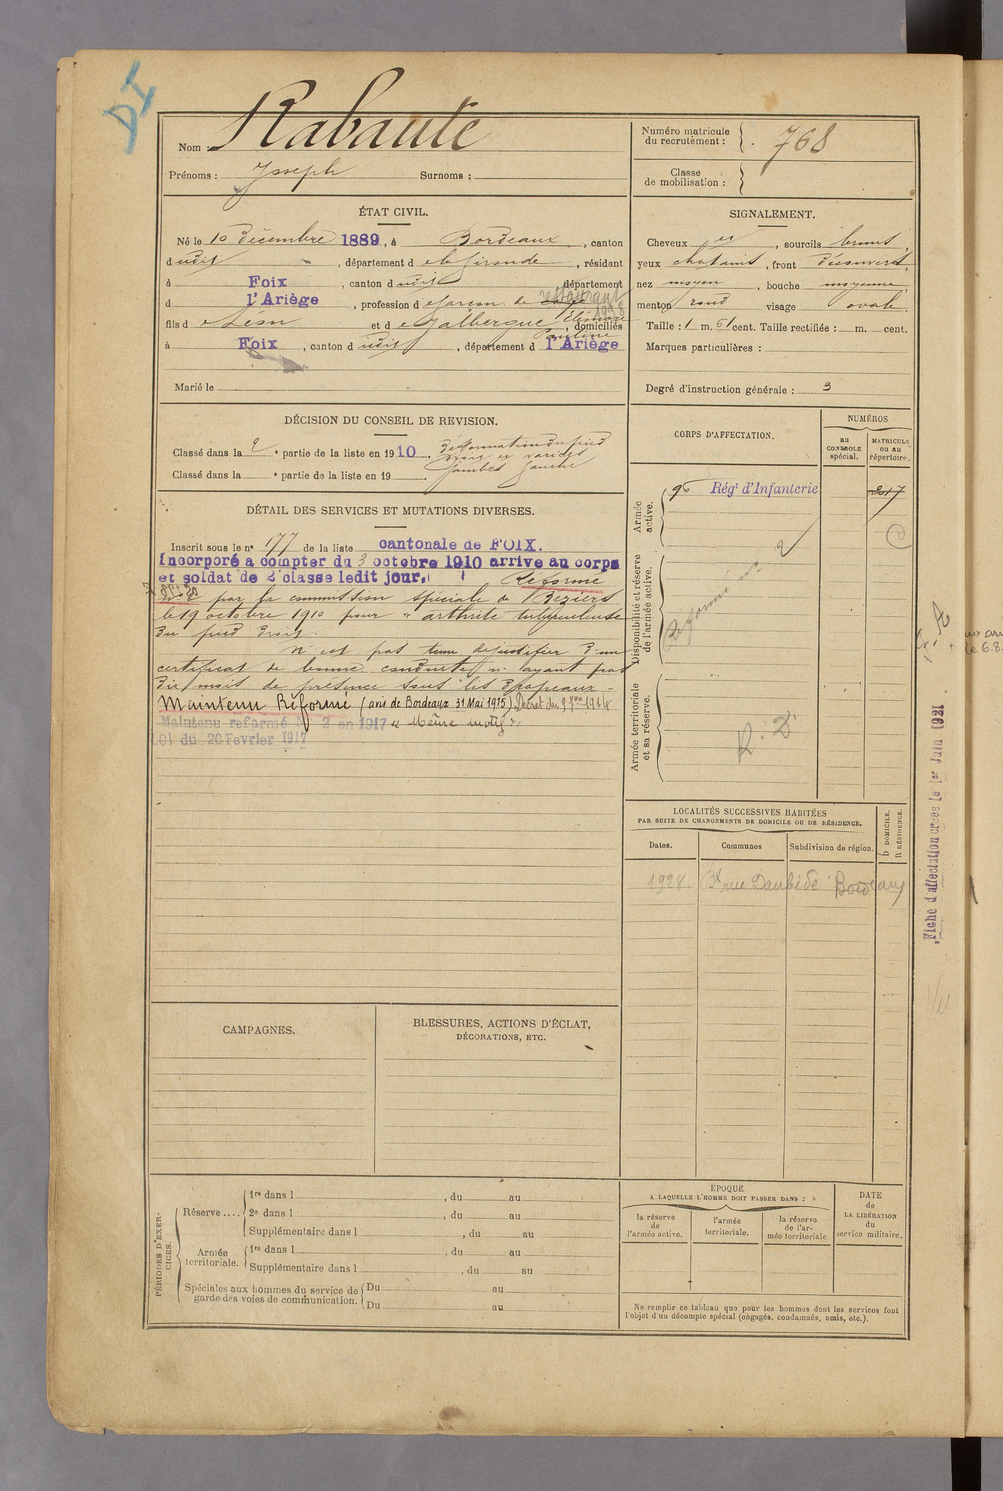 DI
Nom Rabaute
Prénoms : Joseph Surnoms :
Numéro matricule du recrutement : 768
Classe de mobilisation :
ÉTAT CIVIL.
Né le 10 décembre 1889, à Bordeaux, canton
dudit, département de la Gironde, résidant
à Foix, canton dudit, département
d l'Ariège, profession de garçon de restaurant
1928
fils de Léon et de Galbergue Eléonore Pauline, domiciliés
à Foix, canton dudit, département d l'Ariège
Marié le
SIGNALEMENT.
Cheveux et, sourcils bruns,
yeux chatains, front découvert,
nez moyen, bouche moyenne,
menton rond visage ovale.
Taille : 1 m. 61 cent. Taille rectifiée : m. cent.
Marques particulières :
Degré d'instruction générale : 3
DÉCISION DU CONSEIL DE REVISION.
Classé dans la 2e partie de la liste en 1910. Déformation du pied
droit et varices
jambes gauche
Classé dans la e partie de la liste en 19
DÉTAIL DES SERVICES ET MUTATIONS DIVERSES.
Inscrit sous le n° 177 de la liste cantonale de FOIX.
Incorporé a compter du 3 octobre 1910 arrive au corps
et soldat de 2e classe ledit jour. Réformé
n° 2 par la commission spéciale de Béziers
le 19 octobre 1910 pour « arthrite tuberculeuse
du pied droit.
N'est pas tenu de justifier d'un
certificat de bonne conduite n'ayant pas
dix mois de présence sous les drapeaux -
Maintenu Réformé (avis de Bordeaux 31 Mai 1915) Décret du 9 7bre 1914
Maintenu reformé N° 2 en 1917 « Même motif »
Loi du 20 Fevrier 1917
CORPS D'AFFECTATION.
NUMÉROS
au CONTROLE spécial.
MATRICULE ou au répertoire.
Armée active.
96 Régt d'Infanterie 217
Disponibilité et réserve de l'armée active.
Réformé n° 2
Armée territoriale et sa réserve.
R. D.
LOCALITÉS SUCCESSIVES HABITÉES
PAR SUITE DE CHANGEMENTS DE DOMICILE OU DE RÉSIDENCE.
Dates. Communes Subdivision de région. D DOMICILE. R RÉSIDENCE.
1928 rue Daubide Bordeaux
Fiche d'affectation créée le 1er Juin 1921
CAMPAGNES.
BLESSURES, ACTIONS D'ÉCLAT,
DÉCORATIONS, ETC.
PÉRIODES D'EXERCICES.
Réserve .... 1re dans l , du au
2e dans l , du au
Supplémentaire dans l , du au
Armée territoriale. 1re dans l , du au
Supplémentaire dans l , du au
Spéciales aux hommes du service de garde des voies de communication. Du au
Du au
ÉPOQUE
A LAQUELLE L'HOMME DOIT PASSER DANS :
la réserve de l'armée active.
l'armée territoriale.
la réserve de l'armée territoriale.
DATE de LA LIBÉRATION du service militaire.
Ne remplir ce tableau que pour les hommes dont les services font
l'objet d'un décompte spécial (engagés, condamnés, omis, etc.).